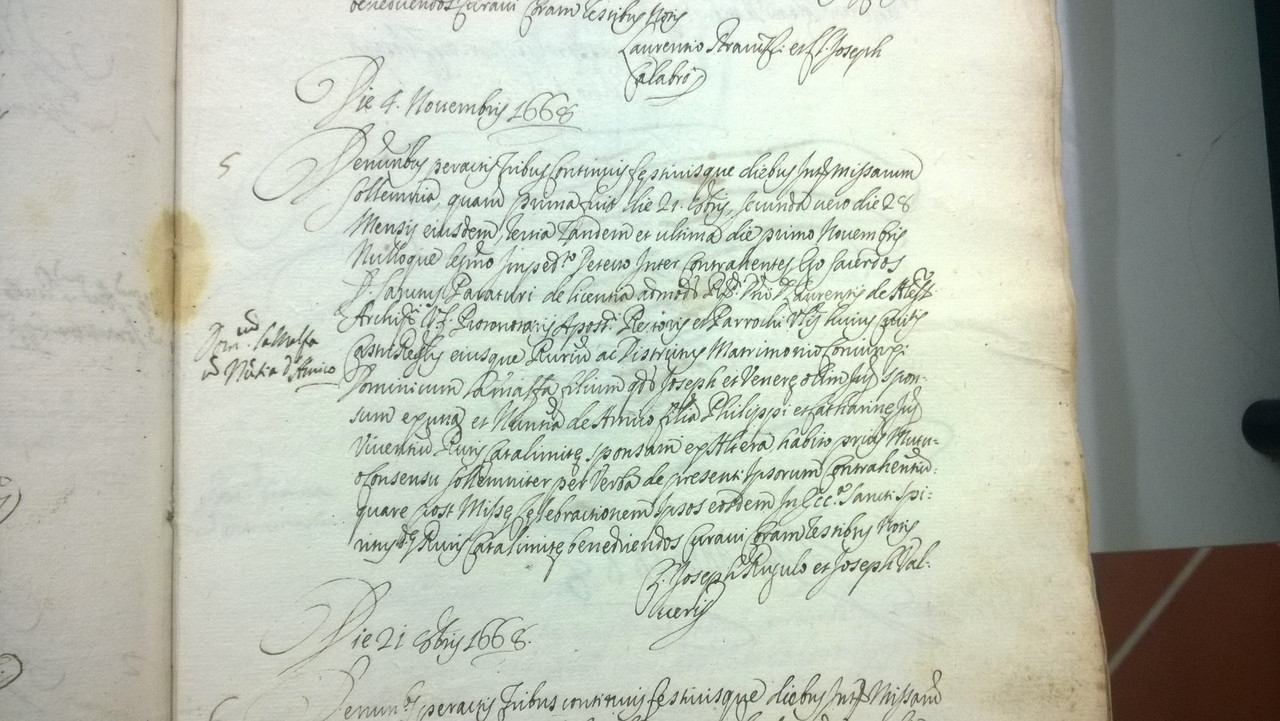 benedicendos curavi coram testibus Notis
Laurentio et Joseph
Calabrò
Die 4. Novembris 1668
5
Denuntibus peractis tribus continuis festivisque diebus Intr Missarum
sollemnia, quarum prima fuit die 21. 8bris, secunda vero die 28
Mensis eiusdem, tertia tandem et ultima die primo Novembris
Nulloque legmo Imped.to detecto Inter Contrahentes Ego sacerdos
D. Pavaturi de licentia admodu Rdi D. Laurentis de
Archipri Protonotarij Apost. Rectoris et Parrochi huius
Castri Regis eiusque Ruriu ac Districtus Matrimonio Coniunxi
Dominicum la Malfa filium qdm Joseph et Venere olim Jug spon-
sum ex una et Nuntia de Amico filia Philippi et Catharine Jug
Viventiu Ruris Catalimite sponsam ex Altera habito prius Mutu-
o Consensu sollemniter per Verba de presenti Ipsorum Contrahentiu:
quare post Misse Celebrationem Ipsos eosdem In Ecc.a Sancti Spi:
ritus Ruris Catalimite benedicendos curavi Coram testibus Notis
Joseph Rugulo et Joseph Val-
veris
Dom. la Malfa
cu Nutia d'Amico
Die 21 8bris 1668.
Denun.bs peractis tribus continuis festivisque diebus Intr Missaru